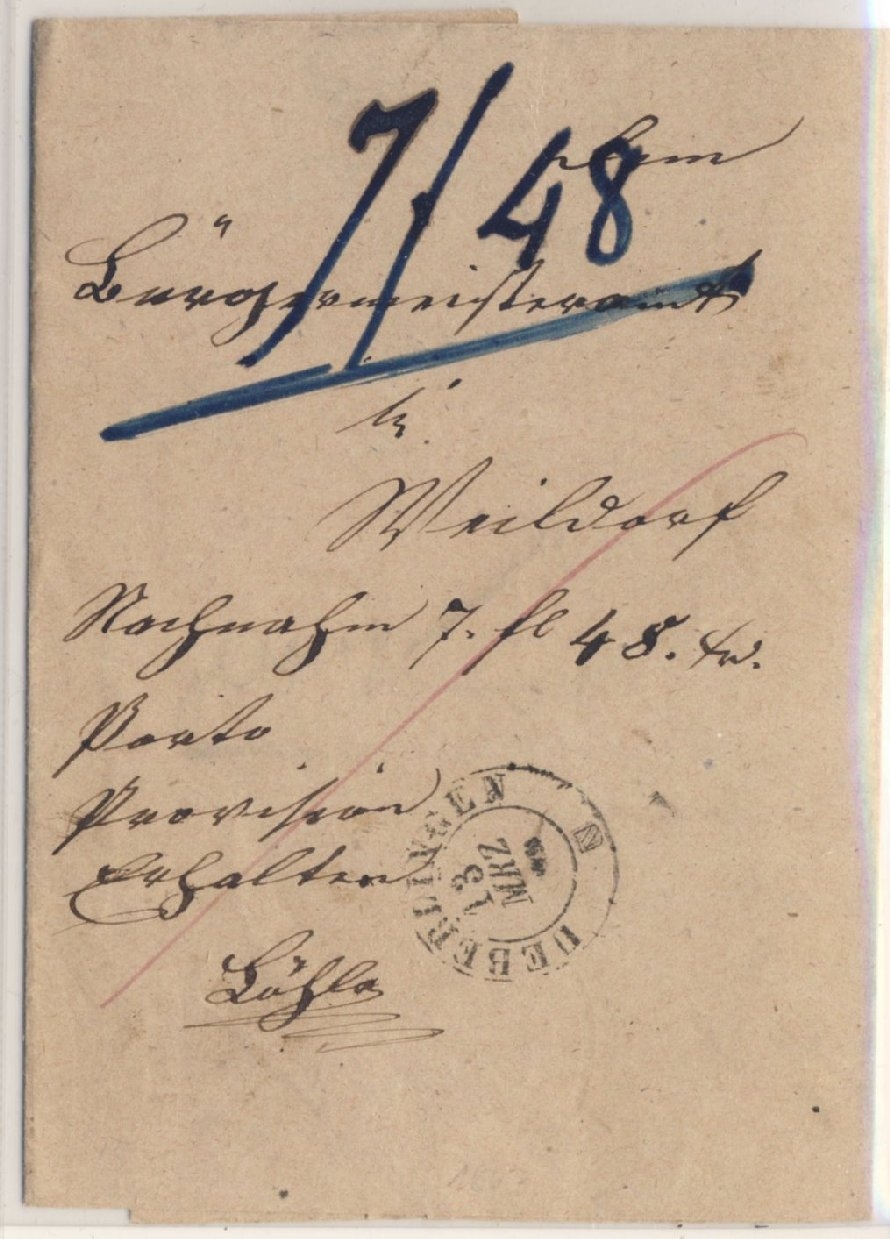 7/48
dem
Bürgermeisteramt
in
Weildorf
Nachnahm 7. fl 48. kr.
Porto
Provision
Erhalten
UEBERLINGEN
13
MRZ